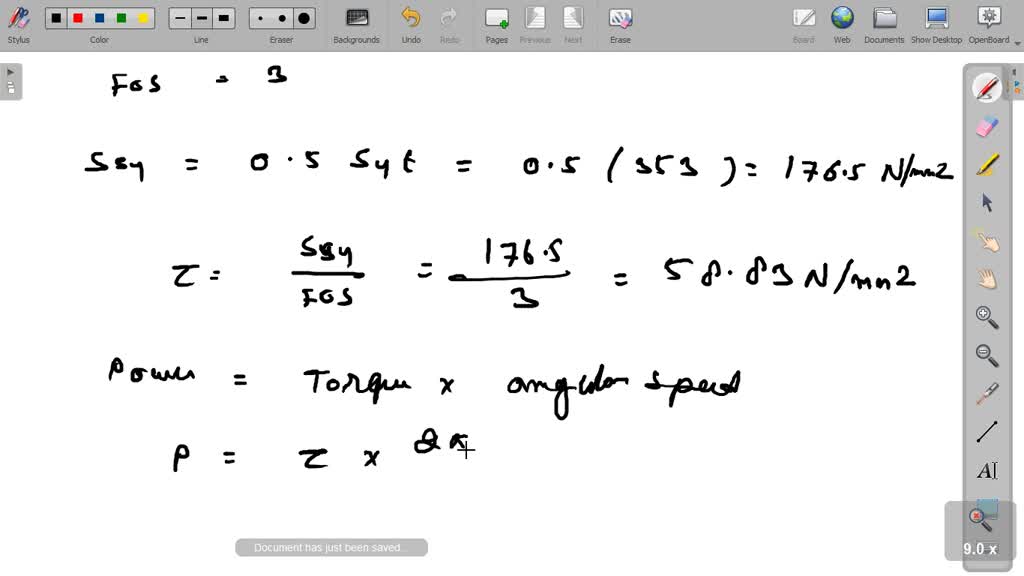 Stylus Color Line Eraser Backgrounds Undo Redo Pages Previous Next Erase Board Web Documents Show Desktop OpenBoard
FOS = 3
Ssy = 0.5 Syt = 0.5 (353) = 176.5 N/mm2
τ = Ssy/FOS = 176.5/3 = 58.83 N/mm2
Power = Torque x angular speed
P = τ x 2π
Document has just been saved...
9.0 x